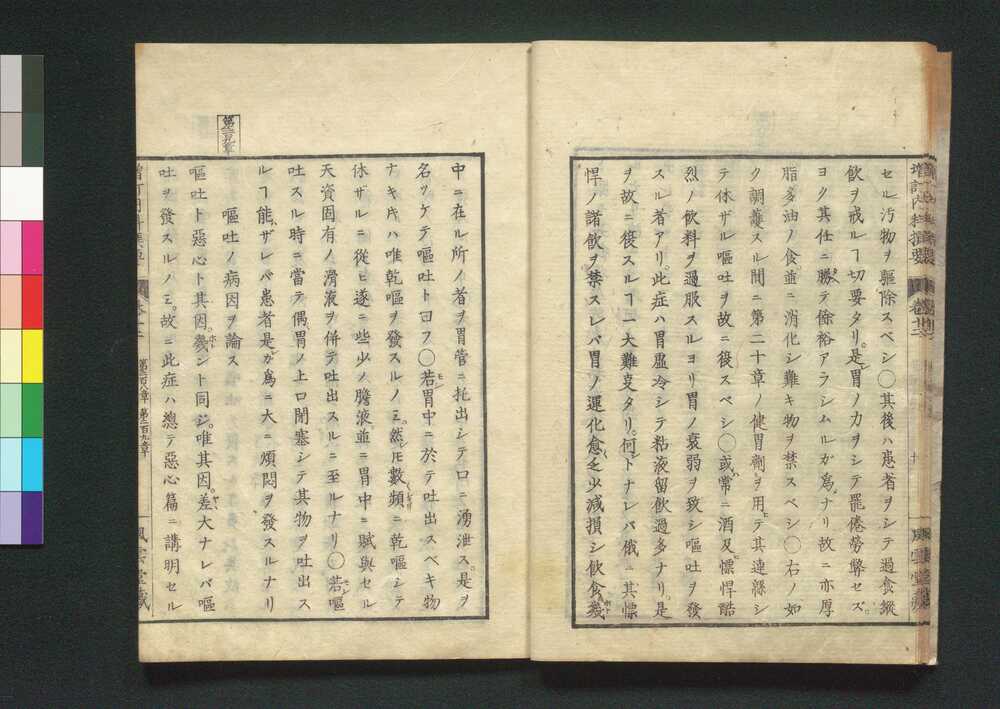 増訂内科撰要
卷十二
風雲堂藏
セル汚物ヲ驅除スベシ〇其後ハ患者ヲシテ過食縱
飲ヲ戒ルヿ切要タリ是レ胃ノ力ヲシテ罷倦勞弊セズ
ヨク其仕ニ勝テ餘裕アラシムルガ爲メナリ故ニ亦厚
脂多油ノ食並ニ消化シ難キ物ヲ禁スベシ〇右ノ如
ク調護スル間ニ第二十章ノ健胃劑ヲ用ヒテ其連緜シ
テ休ザル嘔吐ヲ故ニ復スベシ〇或ハ常ニ酒及ビ慓悍酷
烈ノ飲料ヲ過服スルヨリ胃ノ衰弱ヲ致シ嘔吐ヲ發
スル者アリ此症ハ胃虚冷シテ粘液留飲過多ナリ是
ヲ故ニ復スルヿ一大難事タリ何トナレバ俄ニ其慓
悍ノ諸飲ヲ禁スレバ胃ノ運化愈乏少減損シ飲食幾ホト
中ニ在ル所ノ者ヲ胃管ニ托出シテ口ニ湧泄ス是ヲ
名ツケテ嘔吐ト曰フ〇若シ胃中ニ於テ吐出スベキ物
ナキ時ハ唯乾嘔ヲ發スルノミ然レ𪜈數頻リニ乾嘔シテ
休ザルニ從ヒ遂ニ些少ノ膽液並ニ胃中ニ賦與セル
天資固有ノ滑液ヲ併テ吐出スルニ至ルナリ〇若シ嘔
吐スル時ニ當テ偶胃ノ上口閉塞シテ其物ヲ吐出ス
ルヿ能ハザレバ患者是ガ爲ニ大ニ煩悶ヲ發スルナリ
第二百九章
嘔吐ノ病因ヲ論ス
嘔吐ト惡心ト其因幾ホトント同ジ唯其因差ヤヽ大ナレバ嘔
吐ヲ發スルノミ故ニ此症ハ總テ惡心篇ニ講明セル
第二百八章 第二百九章
風雲堂藏